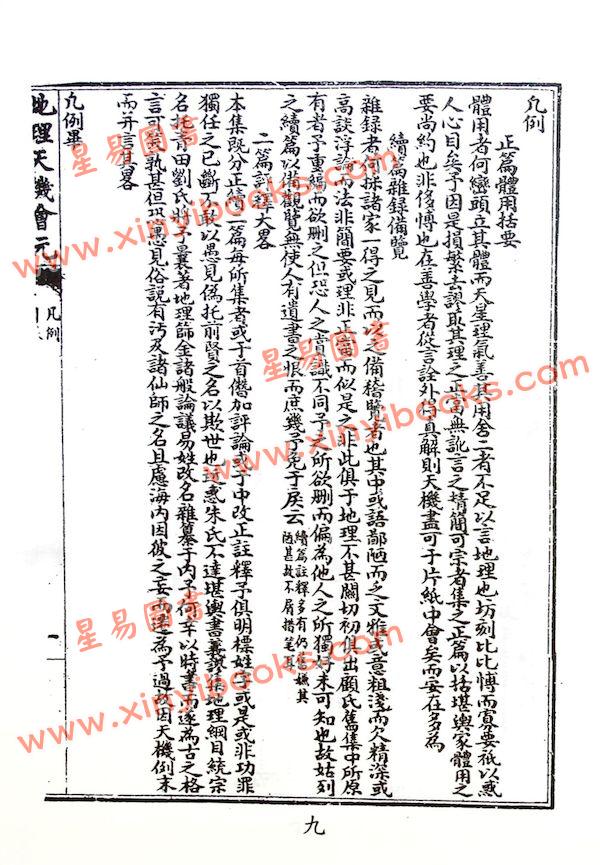 凡例
正篇體用括要
體用者何巒頭立其體而天星理氣善其用舍二者不足以言地理也坊刻比比博而寡要秖以惑
人心目矣予因是損繁去謬取其理之正當無訛言之精簡可宗者集之正篇以括堪輿家體用之
要尚約也非侈博也在善學者從言詮外得真解則天機盡可于片紙中會矣而安在多為
續篇雜錄備覽
雜錄者何採諸家一得之見而以之備稽覽者也其中或語鄙陋而之文雅或意粗淺而欠精深或
高談浮論而法非簡要或理非正當而似是之非此俱于地理不甚關切初俱出顧氏舊集中所原
有者予重編而欲刪之但恐人之肯識不同予之所欲刪而偏為他人之所獨好未可知也故姑列
之續篇以備觀覽無使人有遺書之恨而庶幾予免于戾云
續篇註釋多有仍舊嫌其
陋甚故不屑措筆耳
二篇註釋大畧
本集既分正續二篇每所集者或于首僭加評論或于中改正註釋予俱明標姓字或是或非功罪
獨任之已斷不敢以愚見偽托前賢之名以欺世也
朱氏不達堪輿書義謬集地理綱目統宗
名托青田劉氏將予曩著地理師全諸般論議易姓改名雜纂于內予何幸以時書而遂為古之格
言可笑孰甚但恐愚見俗說有污及諸仙師之名且慮海內因彼之妄而還為予過故因天機例末
而并言其畧
凡例畢
地理天機會元
凡例
九
星易圖書
www.xinyibooks.com
星易圖書
www.xinyibooks.com
星易圖書
www.xinyibooks.com
星易圖書
www.xinyibooks.com